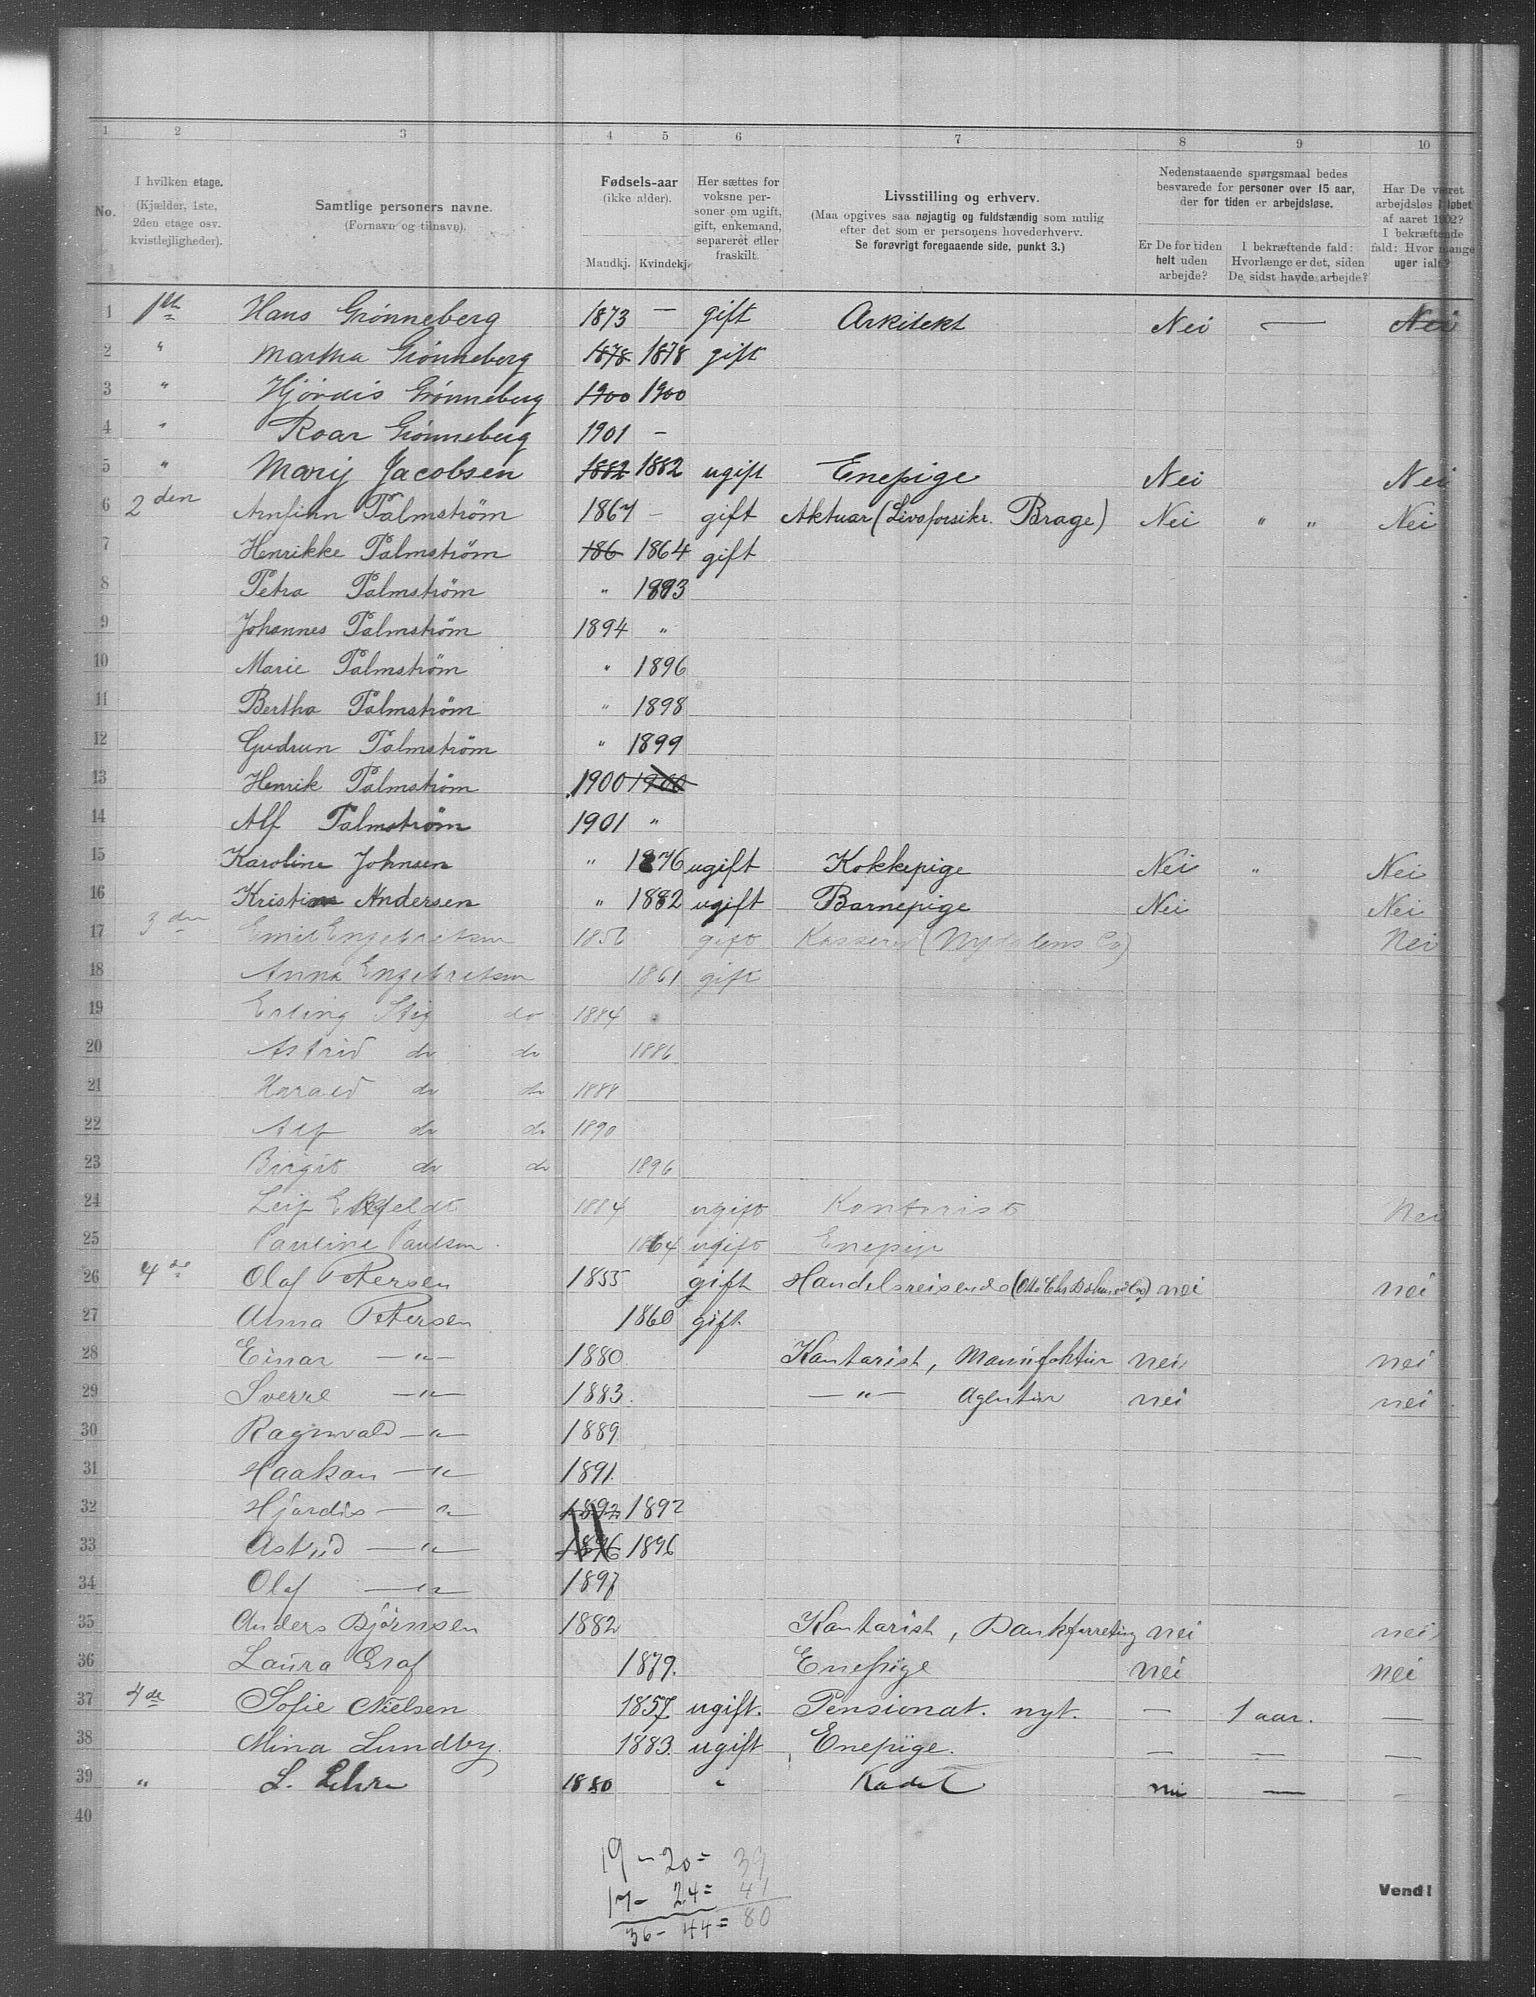 1 2 3 4 5 6 7 8 9 10
No.
I hvilken etage. (Kjælder, 1ste, 2den etage osv. kvistlejligheder).
Samtlige personers navne. (Fornavn og tilnavn).
Fødsels-aar (ikke alder). Mandkj. Kvindekj.
Her sættes for voksne personer om ugift, gift, enkemand, separeret eller fraskilt.
Livsstilling og erhverv. (Maa opgives saa nøjagtig og fuldstændig som mulig efter det som er personens hovederhverv. Se forøvrigt foregaaende side, punkt 3.)
Nedenstaaende spørgsmaal bedes besvarede for personer over 15 aar, der for tiden er arbejdsløse.
Er De for tiden helt uden arbejde?
I bekræftende fald: Hvorlænge er det, siden De sidst havde arbejde?
Har De været arbejdsløs i løbet af aaret 1902? I bekræftende fald: Hvor mange uger ialt?
1 1ste Hans Grønneberg 1873 — gift Arkitekt Nei — Nei
2 " Martha Grønneberg 1878 1878 gift
3 " Hjørdis Grønneberg 1900 1900
4 " Roar Grønneberg 1901 —
5 " Marij Jacobsen 1882 1882 ugift Enepige Nei Nei
6 2den Arnfinn Palmström 1867 — gift Aktuar (Livsforsikr. Brage) Nei " " Nei
7 Henrikke Palmström 186 1864 gift
8 Petra Palmström " 1893
9 Johannes Palmström 1894 "
10 Marie Palmström " 1896
11 Bertha Palmström " 1898
12 Gudrun Palmström " 1899
13 Henrik Palmström 1900 1900
14 Alf Palmström 1901 "
15 Karoline Johnsen " 1876 ugift Kokkepige Nei " Nei
16 Kristine Andersen " 1882 ugift Barnepige Nei Nei
17 3die Emil Engebretsen 1856 gift Kasserer (Nydalens Co) Nei
18 Anna Engebretsen 1861 gift
19 Erling Stig do 1884
20 Astrid do do 1886
21 Harald do do 1888
22 Alf do do 1890
23 Birgit do do 1896
24 Leif 1884 ugift Kontorist Nei
25 Pauline Paulsen 1864 ugift Enepige
26 4de Olaf Petersen 1855 gift Handelsreisende (Otto Chr Co) nei nei
27 Anna Petersen 1860 gift
28 Einar — " — 1880 Kontorist, Manufaktur nei nei
29 Sverre — " — 1883. — " — Agentur nei nei
30 Ragnvald — " — 1889
31 Haakon — " — 1891.
32 Hjørdis — " — 1892 1892
33 Astrid — " — 1896 1896
34 Olaf — " — 1897
35 Anders Bjørnsen 1882 Kontorist, Bankforretning nei nei
36 Laura Graf 1879. Enepige nei nei
37 4de Sofie Nielsen 1857 ugift. Pensionat. nyt. — 1 aar. —
38 Mina Lundby. 1883. ugift Enepige. — — —
39 " L. Lehre 1880 " Kadet nei — —
40
19 - 20 = 39
17 - 24 = 41
36 - 44 = 80
Vend!